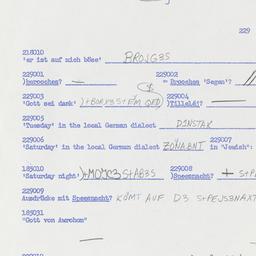 229
218010
'er ist auf mich böse' BROJGƷS
229001 229002
)barooches? — = Brooches 'Segen'?
229003 229004
'Gott sei dank' )Tilleléj? —
229005
'Tuesday' in the local German dialect DINSTAK
229006 229007
'Saturday' in the local German dialect ZONABNT in 'Jewish':
183010 229008
'Saturday night' )Speesnacht? +
229009
Ausdrücke mit Speesnacht? KÖMT AUF D3
183031
"Gott von Awrohom"
—